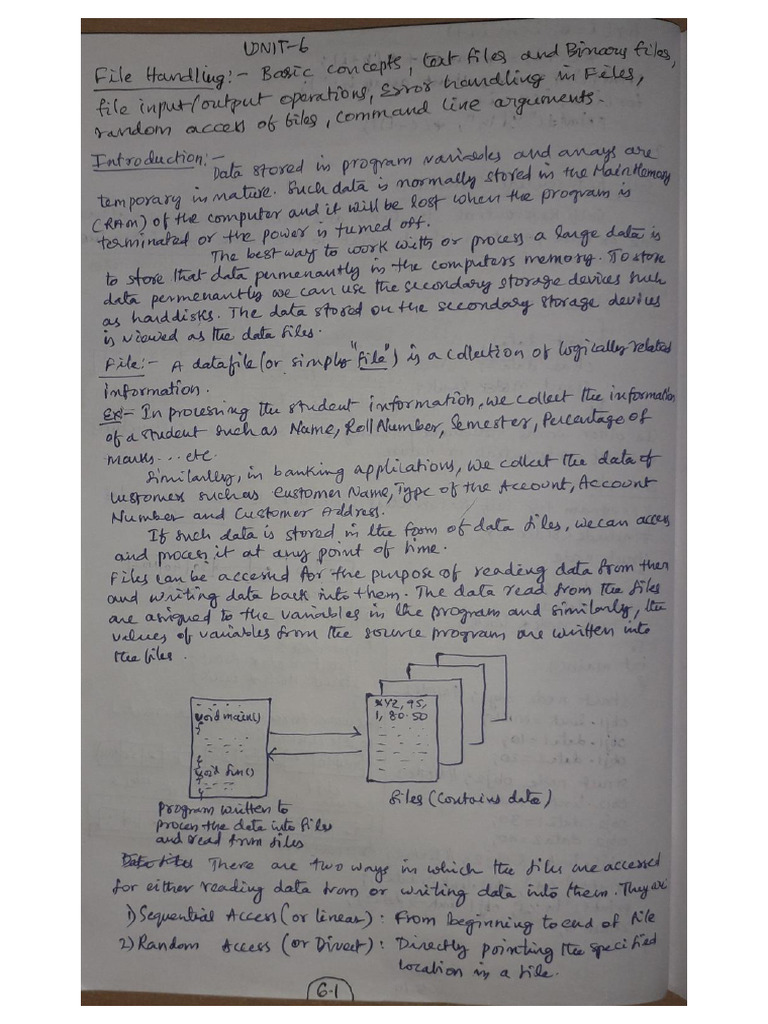 UNIT-6
File Handling:- Basic concepts, text files and Binary files,
file input/output operations, Error handling in Files,
random access of files, command line arguments.
Introduction:-
Data stored in program variables and arrays are
temporary in nature. Such data is normally stored in the Main Memory
(RAM) of the computer and it will be lost when the program is
terminated or the power is turned off.
The best way to work with or process a large data is
to store that data permenantly in the computers memory. To store
data permenantly we can use the secondary storage devices such
as harddisks. The data stored on the secondary storage devices
is viewed as the data files.
File:- A datafile (or simply "file") is a collection of logically related
information.
Ex:- In processing the student information, we collect the information
of a student such as Name, Roll Number, Semester, Percentage of
marks...etc.
Similarly, in banking applications, we collect the data of
customers such as Customer Name, Type of the Account, Account
Number and Customer Address.
If such data is stored in the form of data files, we can access
and process it at any point of time.
Files can be accessed for the purpose of reading data from them
and writing data back into them. The data read from the files
are assigned to the variables in the program and similarly, the
values of variables from the source program are written into
the files.
void main()
{
}
void fun()
{
}
XYZ, 45,
1, 80.50
Program written to
process the data into files
and read from files
files (contains data)
There are two ways in which the files are accessed
for either reading data from or writing data into them. They are
1) Sequential Access (or linear): From beginning to end of file
2) Random Access (or Direct): Directly pointing the specified
location in a file.
6.1